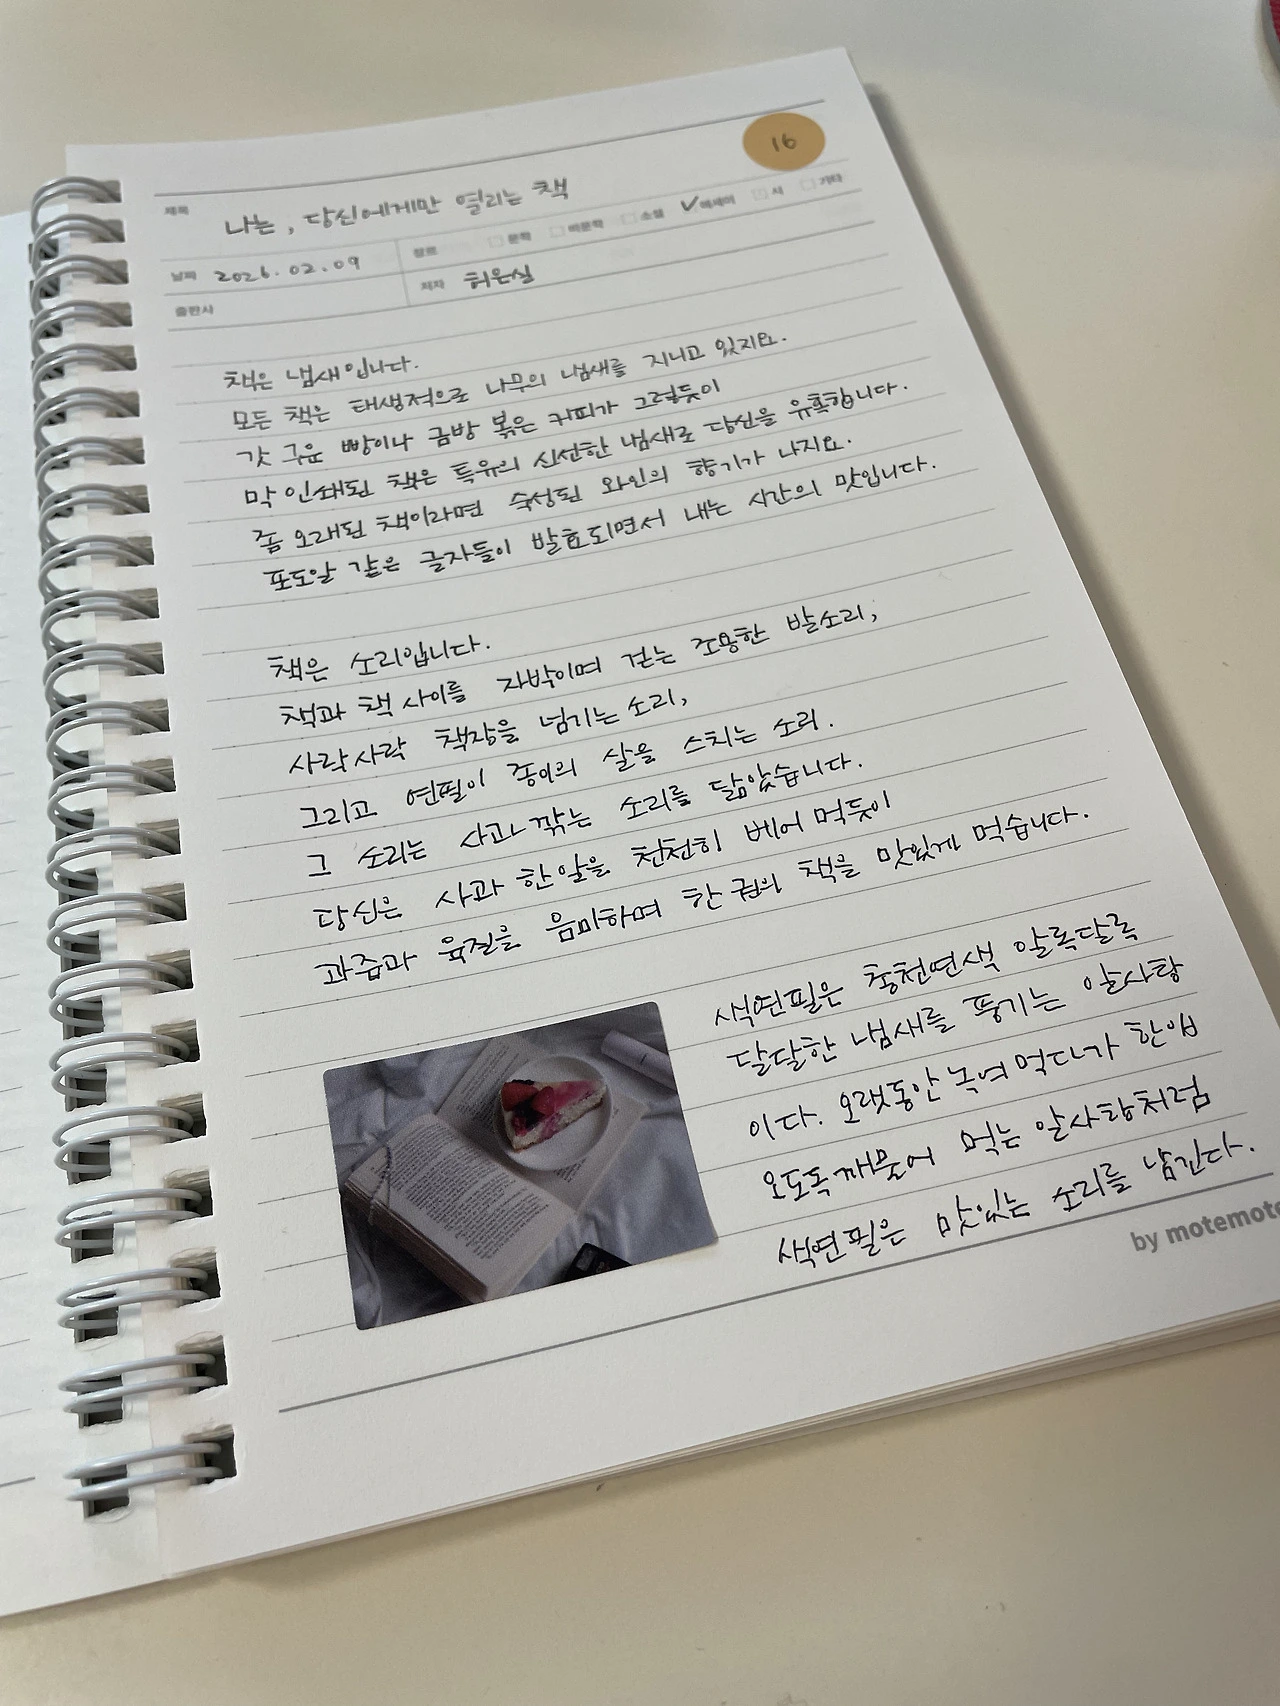 16
제목 나는, 당신에게만 열리는 책
날짜 2026.02.09 장르 문학 비문학 소설 ✓에세이 시 기타
출판사 저자 허은실
책은 냄새입니다.
모든 책은 태생적으로 나무의 냄새를 지니고 있지요.
갓 구운 빵이나 금방 볶은 커피가 그렇듯이
막 인쇄된 책은 특유의 신선한 냄새로 당신을 유혹합니다.
좀 오래된 책이라면 숙성된 와인의 향기가 나지요.
포도알 같은 글자들이 발효되면서 내는 시간의 맛입니다.
책은 소리입니다.
책과 책 사이를 자박이며 걷는 조용한 발소리,
사락사락 책장을 넘기는 소리,
그리고 연필이 종이의 살을 스치는 소리.
그 소리는 사과 깎는 소리를 닮았습니다.
당신은 사과 한 알을 천천히 베어 먹듯이
과즙과 육질을 음미하며 한 권의 책을 맛있게 먹습니다.
색연필은 총천연색 알록달록
달달한 냄새를 풍기는 알사탕
이다. 오랫동안 녹여 먹다가 한입
오도독 깨물어 먹는 알사탕처럼
색연필은 맛있는 소리를 남긴다.
by motemote